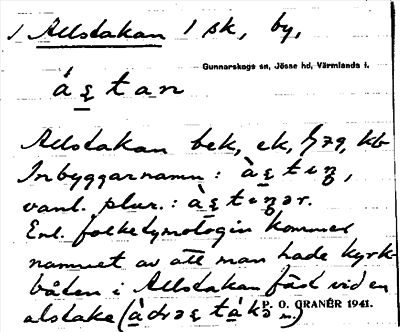 Allstakan 1 sk, by,
Gunnarskogs sn, Jösse hd, Värmlands l.
Allstakan bek, ek, G79, kb
Inbyggarnamn:
vanl. plur.:
Enl. folketymologin kommer
namnet av att man hade kyrk-
båten i Allstakan fäst vid en
alstake (
P. O. GRANÉR 1941.